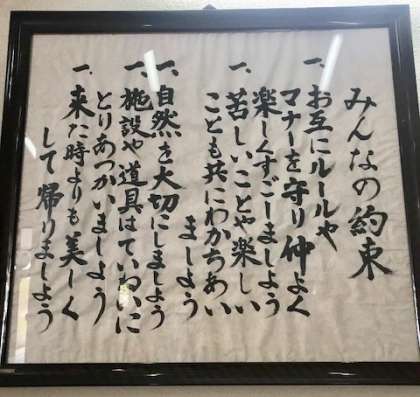 みんなの約束
一、お互にルールや
マナーを守り仲よく
楽しくすごしましよう
一、苦しいことや楽しい
ことも共にわかちあい
ましよう
一、自然を大切にしましよう
一、施設や道具はていねいに
とりあつかいましよう
一、来た時よりも美しく
して帰りましよう